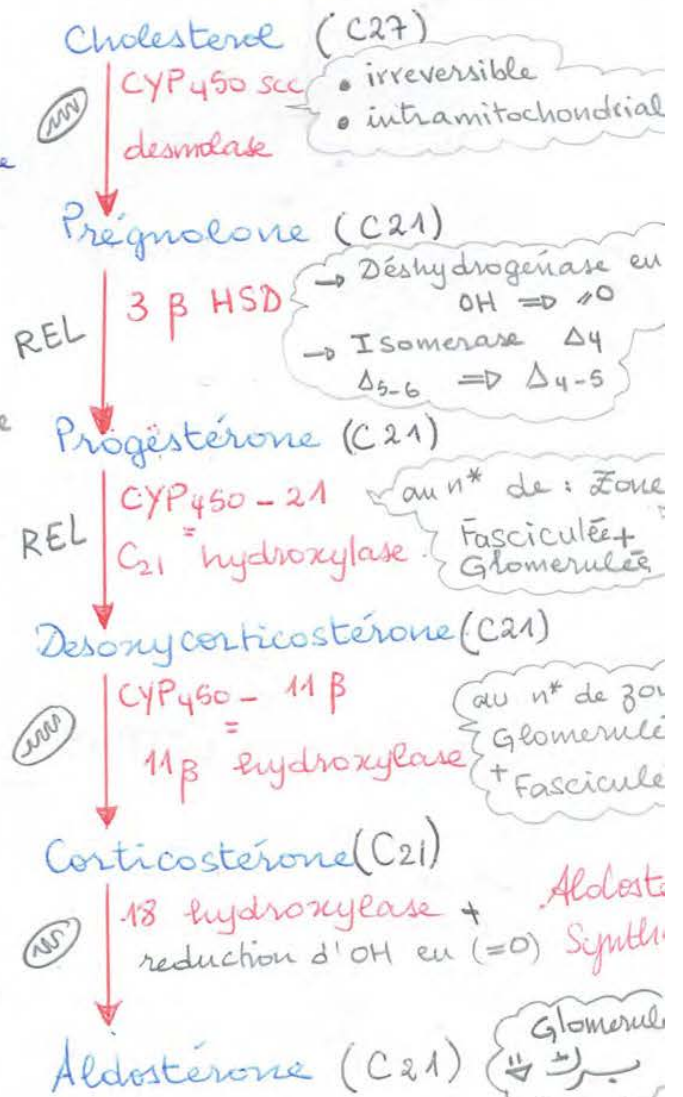 Cholesterol (C27)
CYP450 scc
desmolase
• irreversible
• intramitochondrial
Prégnolone (C21)
REL
3 β HSD
→ Déshydrogénase en
OH ⇒ =O
→ Isomerase Δ4
Δ5-6 ⇒ Δ4-5
Progéstérone (C21)
REL
CYP450-21
=
C21 hydroxylase
au n* de : Zone
Fasciculée+
Glomerulée
Desoxycorticostérone (C21)
CYP450-11β
=
11β hydroxylase
au n* de zon
Glomerulé
+ Fasciculé
Corticostérone (C21)
18 hydroxylase +
reduction d'OH en (=O)
Aldosté
Synth
Aldostérone (C21)
Glomerul
برك